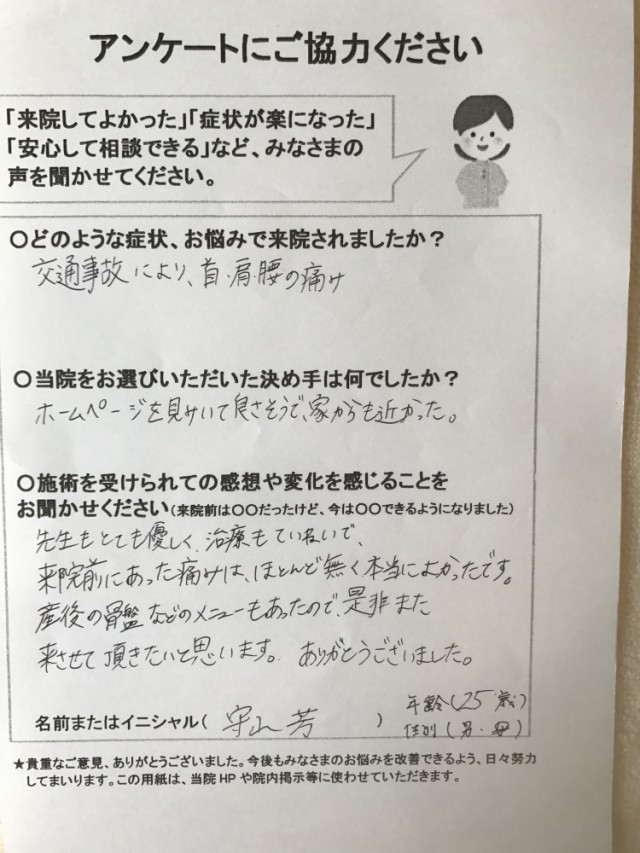 アンケートにご協力ください
「来院してよかった」「症状が楽になった」
「安心して相談できる」など、みなさまの
声を聞かせてください。
○どのような症状、お悩みで来院されましたか？
交通事故により、首・肩・腰の痛み
○当院をお選びいただいた決め手は何でしたか？
ホームページを見ていて良さそうで、家からも近かった。
○施術を受けられての感想や変化を感じることを
お聞かせください（来院前は○○だったけど、今は○○できるようになりました）
先生もとても優しく、治療もていねいで、
来院前にあった痛みは、ほとんど無く本当によかったです。
産後の骨盤などのメニューもあったので、是非また
来させて頂きたいと思います。ありがとうございました。
年齢（25歳）
名前またはイニシャル（ 守山 芳 ） 性別（男・
★貴重なご意見、ありがとうございました。今後もみなさまのお悩みを改善できるよう、日々努力
してまいります。この用紙は、当院HPや院内掲示等に使わせていただきます。